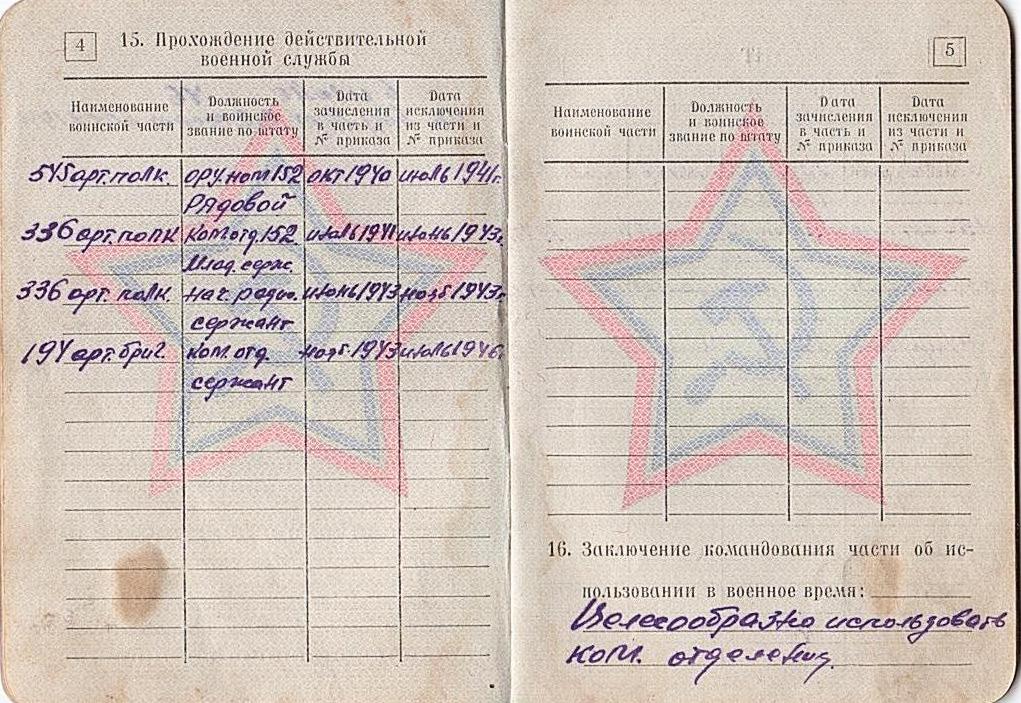 4
15. Прохождение действительной
военной службы
Наименование
воинской части
Должность
и воинское
звание по штату
Дата
зачисления
в часть и
№ приказа
Дата
исключения
из части и
№ приказа
545 арт. полк. ору. ном 152 окт 1940 июль 1941г.
Рядовой
336 арт. полк ком отд. 152 июль 1941 июнь 1943г.
Млад. серж.
336 арт. полк. нач. радио. июнь 1943 нояб. 1943г.
сержант
194 арт. бриг. ком отд. нояб. 1943 июль 1946
сержант
5
Наименование
воинской части
Должность
и воинское
звание по штату
Дата
зачисления
в часть и
№ приказа
Дата
исключения
из части и
№ приказа
16. Заключение командования части об ис-
пользовании в военное время:
Целесообразно использовать
ком. отделения.